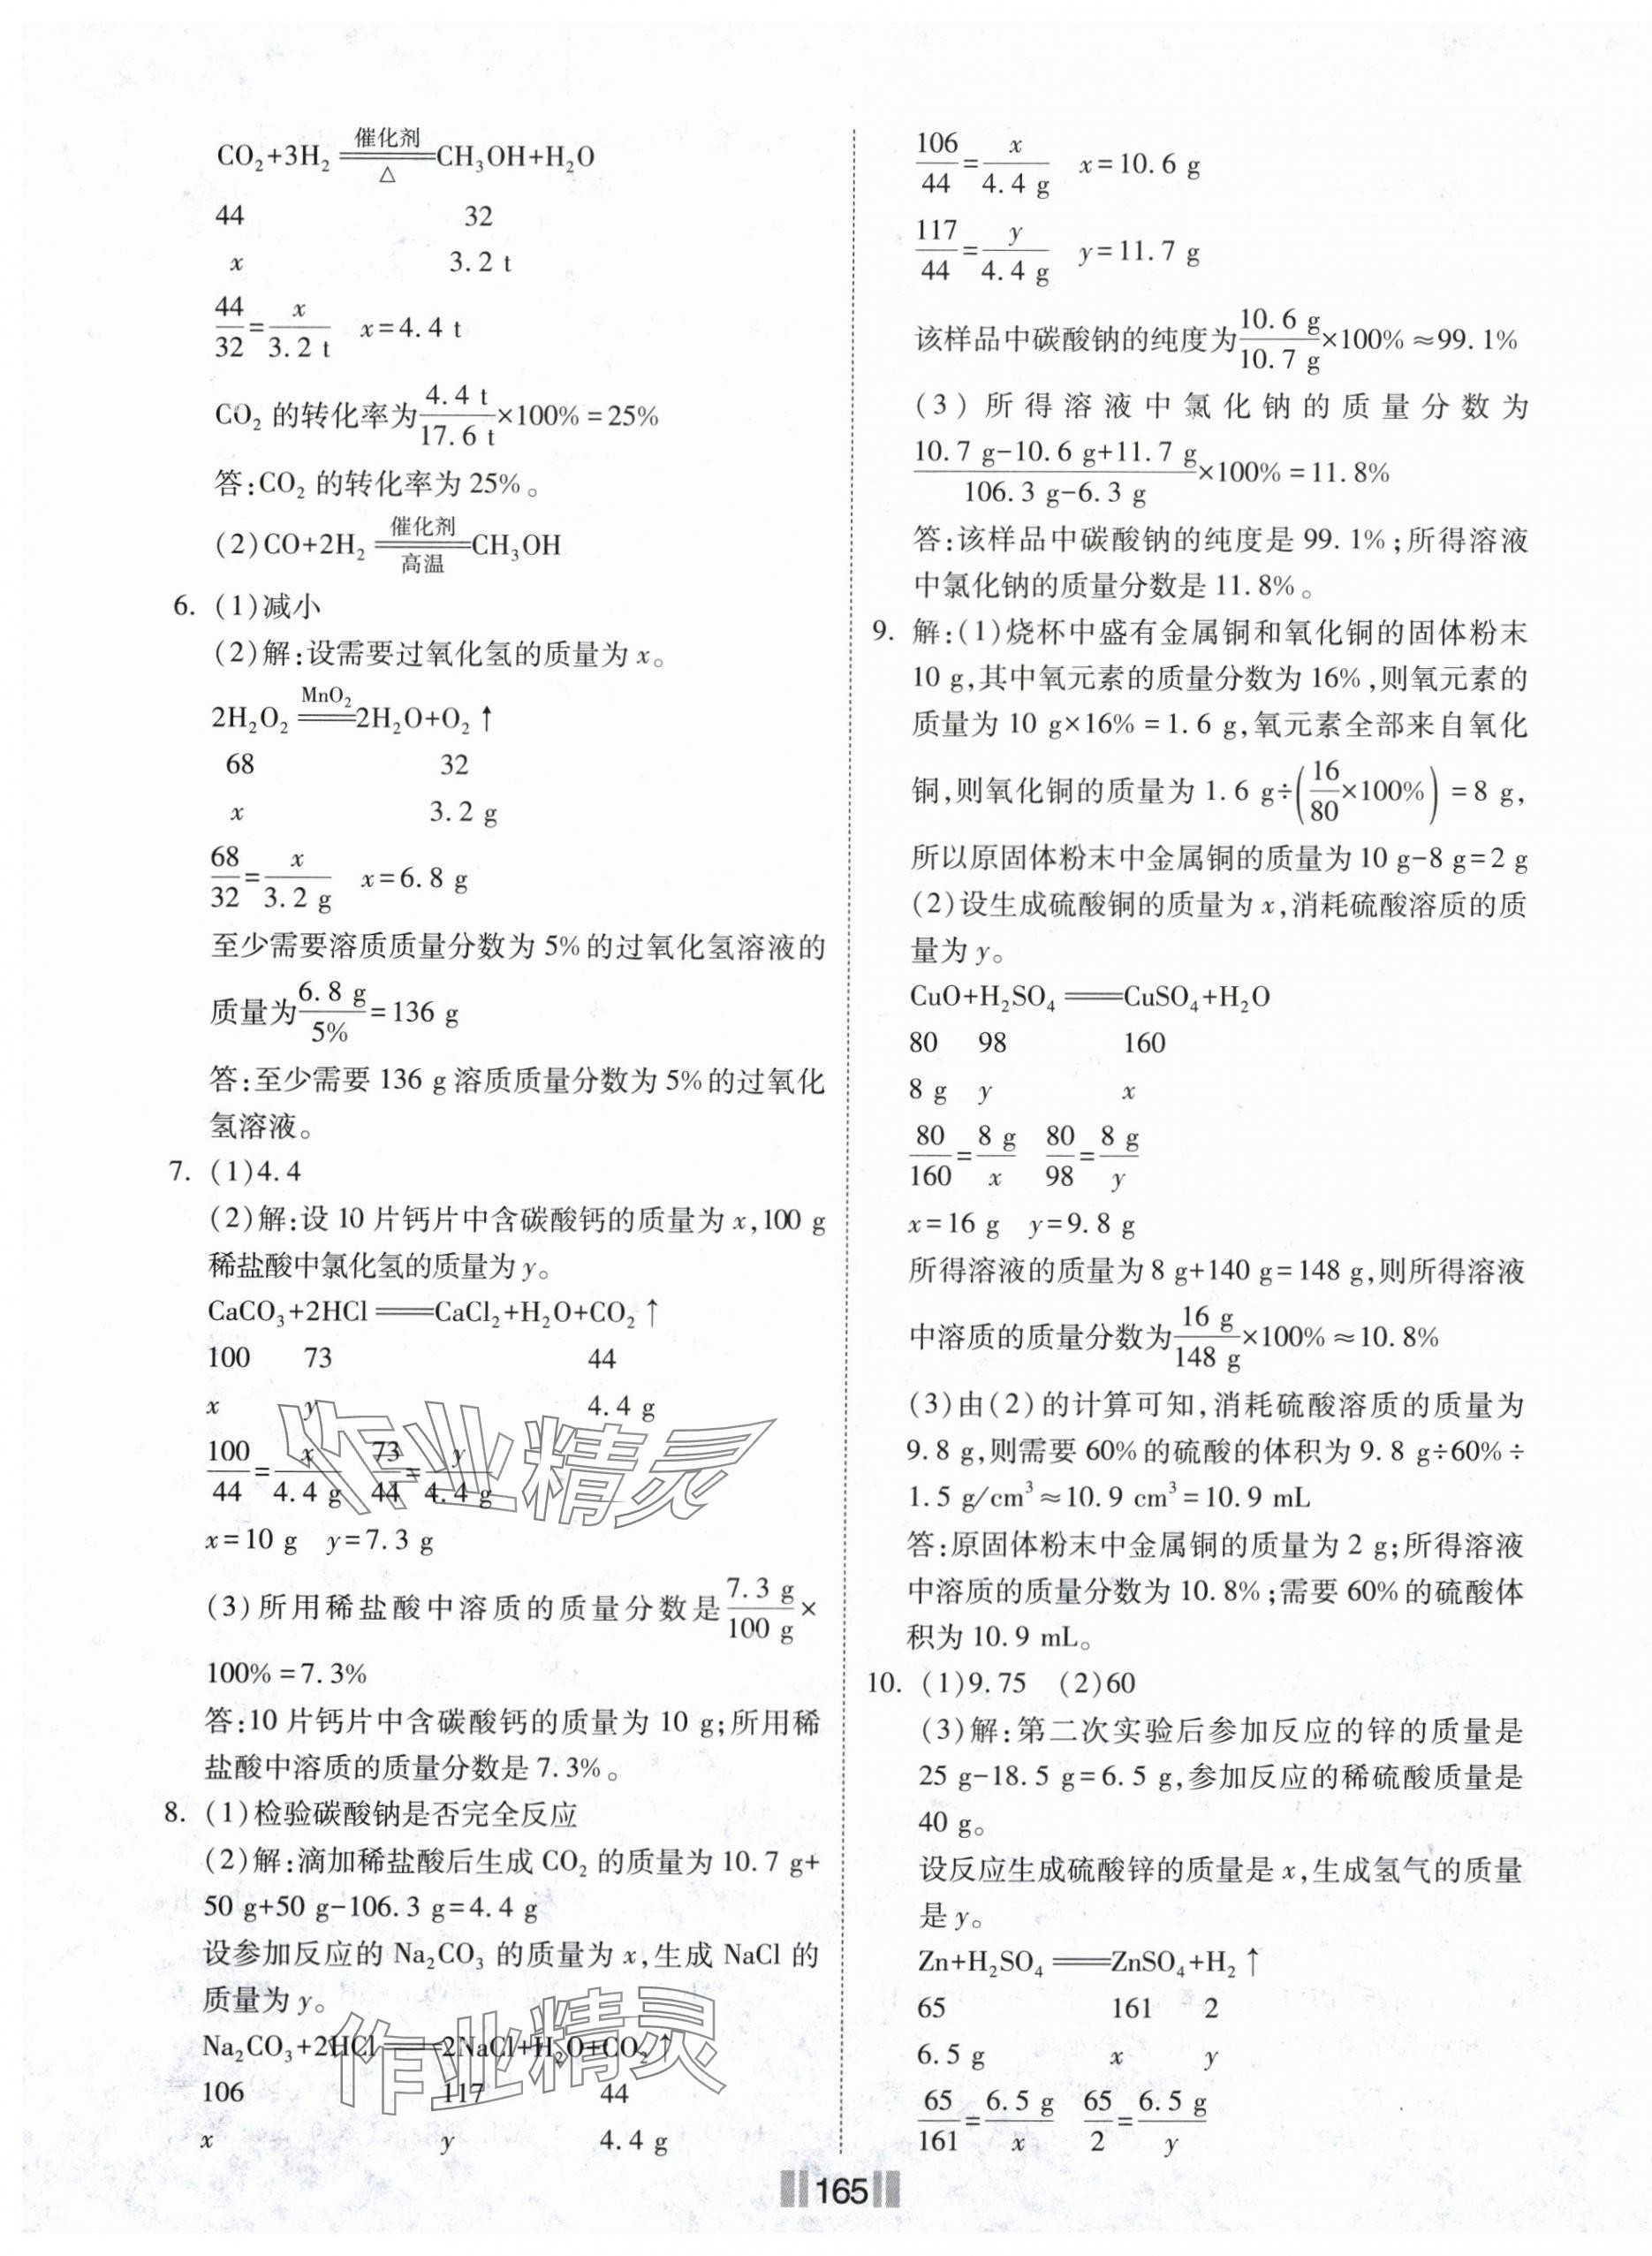 CO₂+3H₂ 催化剂══△ CH₃OH+H₂O
44 32
x 3.2 t
44/32=x/3.2 t x=4.4 t
CO₂ 的转化率为4.4 t/17.6 t×100%=25%
答:CO₂ 的转化率为 25%。
(2)CO+2H₂ 催化剂══高温 CH₃OH
6. (1)减小
(2)解:设需要过氧化氢的质量为 x。
2H₂O₂ MnO₂══ 2H₂O+O₂↑
68 32
x 3.2 g
68/32=x/3.2 g x=6.8 g
至少需要溶质质量分数为 5%的过氧化氢溶液的
质量为6.8 g/5%=136 g
答:至少需要 136 g 溶质质量分数为 5%的过氧化
氢溶液。
7. (1)4.4
(2)解:设 10 片钙片中含碳酸钙的质量为 x,100 g
稀盐酸中氯化氢的质量为 y。
CaCO₃+2HCl══CaCl₂+H₂O+CO₂↑
100 73 44
x y 4.4 g
100/44=x/4.4 g 73/44=y/4.4 g
x=10 g y=7.3 g
(3)所用稀盐酸中溶质的质量分数是7.3 g/100 g×
100%=7.3%
答:10 片钙片中含碳酸钙的质量为 10 g;所用稀
盐酸中溶质的质量分数是 7.3%。
8. (1)检验碳酸钠是否完全反应
(2)解:滴加稀盐酸后生成 CO₂ 的质量为 10.7 g+
50 g+50 g-106.3 g=4.4 g
设参加反应的 Na₂CO₃ 的质量为 x,生成 NaCl 的
质量为 y。
Na₂CO₃+2HCl══2NaCl+H₂O+CO₂↑
106 117 44
x y 4.4 g
106/44=x/4.4 g x=10.6 g
117/44=y/4.4 g y=11.7 g
该样品中碳酸钠的纯度为10.6 g/10.7 g×100%≈99.1%
(3)所得溶液中氯化钠的质量分数为
10.7 g-10.6 g+11.7 g/106.3 g-6.3 g×100%=11.8%
答:该样品中碳酸钠的纯度是 99.1%;所得溶液
中氯化钠的质量分数是 11.8%。
9. 解:(1)烧杯中盛有金属铜和氧化铜的固体粉末
10 g,其中氧元素的质量分数为 16%,则氧元素的
质量为 10 g×16%=1.6 g,氧元素全部来自氧化
铜,则氧化铜的质量为 1.6 g÷(16/80×100%)=8 g,
所以原固体粉末中金属铜的质量为 10 g-8 g=2 g
(2)设生成硫酸铜的质量为 x,消耗硫酸溶质的质
量为 y。
CuO+H₂SO₄══CuSO₄+H₂O
80 98 160
8 g y x
80/160=8 g/x 80/98=8 g/y
x=16 g y=9.8 g
所得溶液的质量为 8 g+140 g=148 g,则所得溶液
中溶质的质量分数为16 g/148 g×100%≈10.8%
(3)由(2)的计算可知,消耗硫酸溶质的质量为
9.8 g,则需要 60%的硫酸的体积为 9.8 g÷60%÷
1.5 g/cm³≈10.9 cm³=10.9 mL
答:原固体粉末中金属铜的质量为 2 g;所得溶液
中溶质的质量分数为 10.8%;需要 60%的硫酸体
积为 10.9 mL。
10. (1)9.75 (2)60
(3)解:第二次实验后参加反应的锌的质量是
25 g-18.5 g=6.5 g,参加反应的稀硫酸质量是
40 g。
设反应生成硫酸锌的质量是 x,生成氢气的质量
是 y。
Zn+H₂SO₄══ZnSO₄+H₂↑
65 161 2
6.5 g x y
65/161=6.5 g/x 65/2=6.5 g/y
165
作业精灵
作业精灵